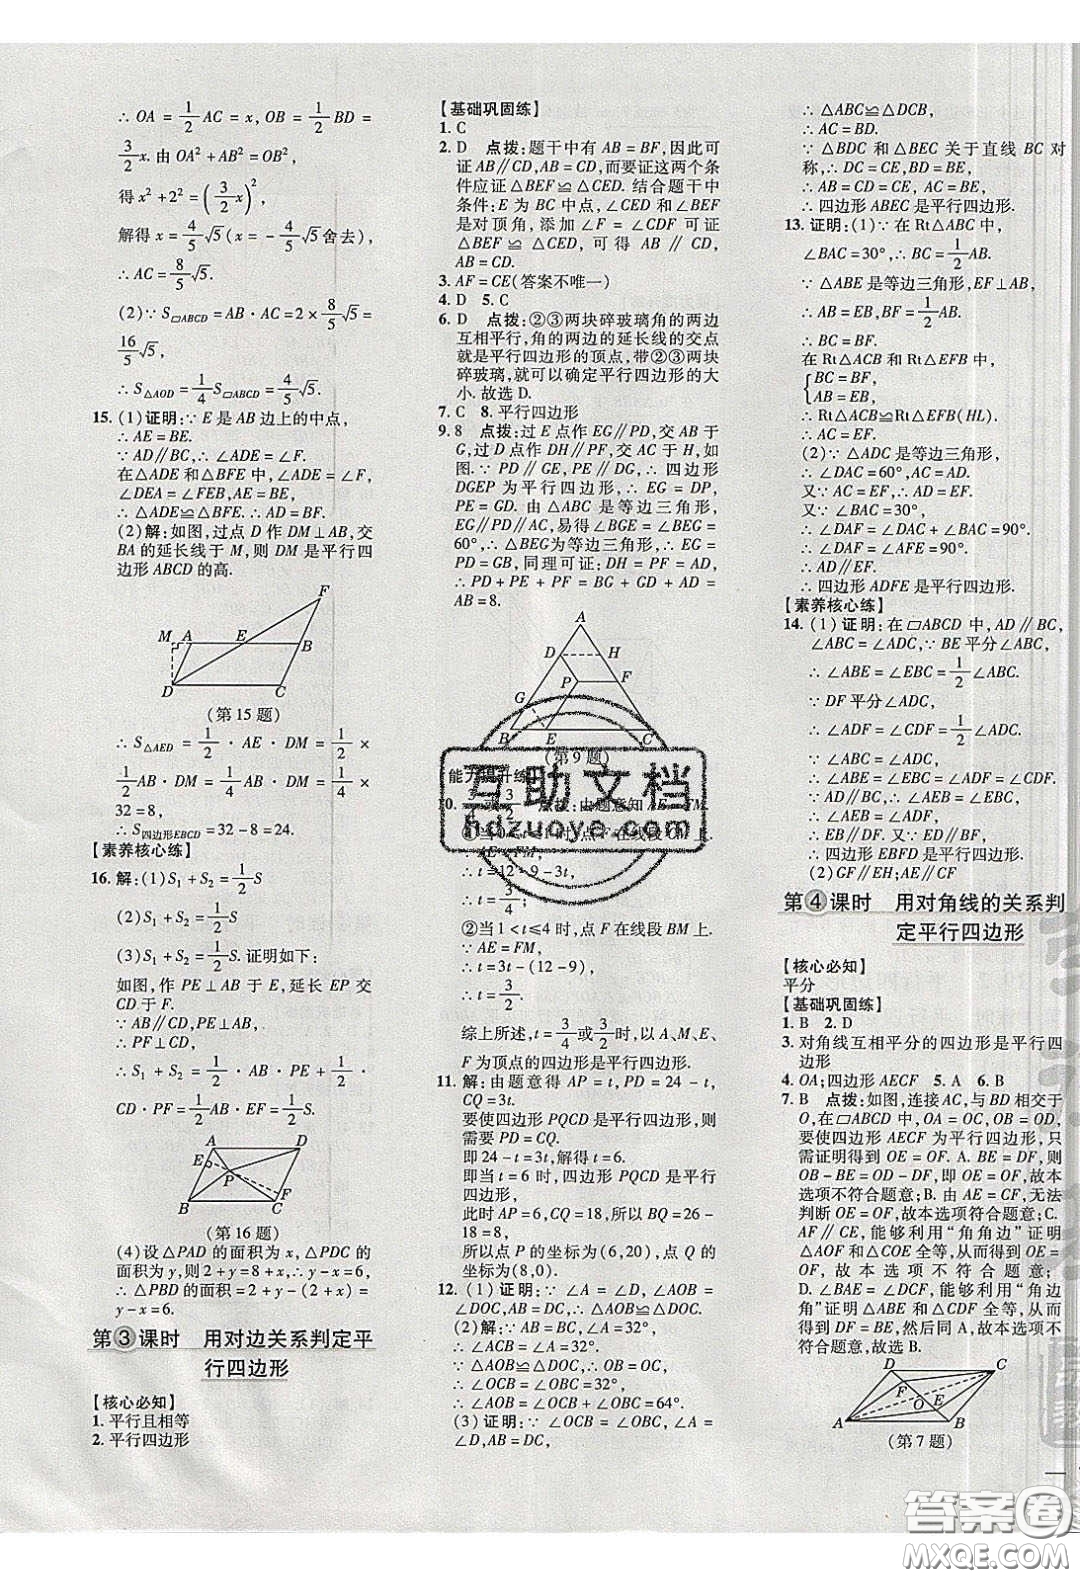 ∴ OA = 1/2 AC = x, OB = 1/2 BD =
3/2 x. 由 OA² + AB² = OB²,
得 x² + 2² = (3/2 x)²
解得 x = 4/5 √5 (x = - 4/5 √5 舍去),
∴ AC = 8/5 √5.
(2)∵ S▱ABCD = AB · AC = 2 × 8/5 √5 =
16/5 √5,
∴ S△AOD = 1/4 S▱ABCD = 4/5 √5.
15. (1)证明:∵ E 是 AB 边上的中点,
∴ AE = BE.
∵ AD∥BC, ∴ ∠ADE = ∠F.
在△ADE 和△BFE 中, ∠ADE = ∠F,
∠DEA = ∠FEB, AE = BE,
∴ △ADE≌△BFE. ∴ AD = BF.
(2)解:如图,过点 D 作 DM⊥AB,交
BA 的延长线于 M,则 DM 是平行四
边形 ABCD 的高.
F
M A E B
D C
(第 15 题)
∴ S△AED = 1/2 · AE · DM = 1/2 ×
1/2 AB · DM = 1/2 × 1/2 AB · DM = 1/4 ×
32 = 8,
∴ S四边形EBCD = 32 - 8 = 24.
【素养核心练】
16. 解:(1)S₁ + S₂ = 1/2 S
(2)S₁ + S₂ = 1/2 S
(3)S₁ + S₂ = 1/2 S. 证明如下:
如图,作 PE⊥AB 于 E,延长 EP 交
CD 于 F.
∵ AB∥CD, PE⊥AB,
∴ PF⊥CD.
∴ S₁ + S₂ = 1/2 AB · PE + 1/2 ·
CD · PF = 1/2 AB · EF = 1/2 S.
A D
E
P
F
B C
(第 16 题)
(4)设△PAD 的面积为 x, △PDC 的
面积为 y, 则 2 + y = 8 + x, ∴ y - x = 6,
∴ △PBD 的面积 = 2 + y - (8 + x) =
y - x = 6.
第③课时 用对边关系判定平
行四边形
【核心必知】
1. 平行且相等
2. 平行四边形
【基础巩固练】
1. C
2. D 点拨:题干中有 AB = BF, 因此可
证 AB∥CD, AB = CD, 而要证这两个条
件应证△BEF≌△CED. 结合题干中
条件:E 为 BC 中点, ∠CED 和∠BEF
是对顶角, 添加∠F = ∠CDF 可证
△BEF≌△CED, 可得 AB∥CD,
AB = CD.
3. AF = CE(答案不唯一)
4. D 5. C
6. D 点拨:②③两块碎玻璃角的两边
互相平行,角的两边的延长线的交点
就是平行四边形的顶点,带②③两块
碎玻璃,就可以确定平行四边形的大
小. 故选 D.
7. C 8. 平行四边形
9. 8 点拨:过 E 点作 EG∥PD, 交 AB 于
G, 过 D 点作 DH∥PF, 交 AC 于 H, 如
图. ∵ PD∥GE, PE∥DG, ∴ 四边形
DGEP 为平行四边形, ∴ EG = DP,
PE = GD. 由△ABC 是等边三角形,
EG∥PD∥AC, 易得∠BGE = ∠BEG =
60°, ∴ △BEG为等边三角形, ∴ EG =
PD = GB, 同理可证:DH = PF = AD,
∴ PD + PE + PF = BG + GD + AD =
AB = 8.
A
D H
P F
G
B E C
(第 9 题)
能力提升练
10. 3/4 或 3/2 点拨:由题意知 AE = FM.
①当 0 < t ≤ 1 时, 点 F 在线段 CM 上.
∵ AE = FM,
∴ t = 12 - 9 - 3t,
∴ t = 3/4;
②当 1 < t ≤ 4 时, 点 F 在线段 BM 上.
∵ AE = FM,
∴ t = 3t - (12 - 9),
∴ t = 3/2.
综上所述, t = 3/4 或 3/2 时, 以 A、M、E、
F 为顶点的四边形是平行四边形.
11. 解:由题意得 AP = t, PD = 24 - t,
CQ = 3t.
要使四边形 PQCD 是平行四边形, 则
需要 PD = CQ.
即 24 - t = 3t, 解得 t = 6.
即当 t = 6 时, 四边形 PQCD 是平行
四边形,
此时 AP = 6, CQ = 18, 所以 BQ = 26 -
18 = 8,
所以点 P 的坐标为 (6, 20), 点 Q 的
坐标为 (8, 0).
12. (1)证明:∵ ∠A = ∠D, ∠AOB =
∠DOC, AB = DC,
∴ △AOB≌△DOC.
(2)∵ △AOB≌△DOC,
∴ OB = OC. ∵ ∠OBC = 32°,
∴ ∠OCB = ∠OBC = 32°,
∴ ∠AOB = ∠OBC + ∠OCB = 64°.
(3)证明:∵ ∠OCB = ∠OBC, ∠A =
∠D, AB = DC,
∴ △ABC≌△DCB,
∴ AC = BD.
∵ △BDC 和△BEC 关于直线 BC 对
称, ∴ △BDC≌△BEC.
∴ AB = CD = CE, AC = BD = BE,
∴ 四边形 ABEC 是平行四边形.
13. 证明:(1)∵ 在 Rt△ABC 中,
∠BAC = 30°, ∴ BC = 1/2 AB.
∵ △ABE 是等边三角形, EF⊥AB,
∴ AB = EB, BF = 1/2 AB,
∴ BC = BF.
在 Rt△ACB 和 Rt△EFB 中,
{BC = BF,
AB = EB,
∴ Rt△ACB≌Rt△EFB(HL).
∴ AC = EF.
(2)∵ △ADC 是等边三角形,
∴ ∠DAC = 60°, AC = AD.
又∵ AC = EF, ∴ AD = EF.
又∵ ∠BAC = 30°,
∴ ∠DAF = ∠DAC + ∠BAC = 90°.
∴ ∠DAF = ∠AFE = 90°.
∴ AD∥EF.
∴ 四边形 ADFE 是平行四边形.
【素养核心练】
14. (1)证明:在▱ABCD 中, AD∥BC,
∠ABC = ∠ADC, ∵ BE 平分∠ABC,
∴ ∠ABE = ∠EBC = 1/2 ∠ABC,
∵ DF 平分∠ADC,
∴ ∠ADF = ∠CDF = 1/2 ∠ADC,
∵ ∠ABC = ∠ADC, ∴ ∠ABE = ∠ADF.
∵ AD∥BC, ∴ ∠AEB = ∠EBC,
∴ ∠AEB = ∠ADF,
∴ EB∥DF. 又∵ ED∥BF,
∴ 四边形 EBFD 是平行四边形.
(2) GF∥EH; AE∥CF
第④课时 用对角线的关系判
定平行四边形
【核心必知】
平分
【基础巩固练】
1. B 2. D
3. 对角线互相平分的四边形是平行四
边形
4. OA;四边形 AECF 5. A 6. B
7. B 点拨:如图,连接 AC, 与 BD 相交于
O, 在▱ABCD 中, OA = OC, OB = OD,
要使四边形 AECF 为平行四边形, 只
需证明得到 OE = OF. A. BE = DF, 则
OB - BE = OD - DF, 即 OE = OF, 故本
选项不符合题意; B. 由 AE = CF, 无法
判断 OE = OF, 故本选项符合题意; C.
AF∥CE, 能够利用“角角边”证明
△AOF 和△COE 全等, 从而得到 OE =
OF, 故本选项不符合题意;
D. ∠BAE = ∠DCF, 能够利用“角边
角”证明△ABE 和△CDF 全等, 从
而得到 DF = BE, 然后同 A, 故本选
项不符合题意. 故选 B.
D C
F O E
A B
(第 7 题)
互助文档
hdzuoye.com
答案圈
MXQE.COM